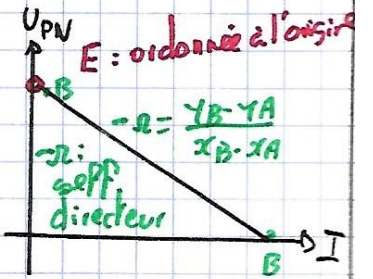 U_PN
E : ordonnée à l'origine
B
-r = (y_B - y_A) / (x_B - x_A)
-r :
coeff
directeur
I
B